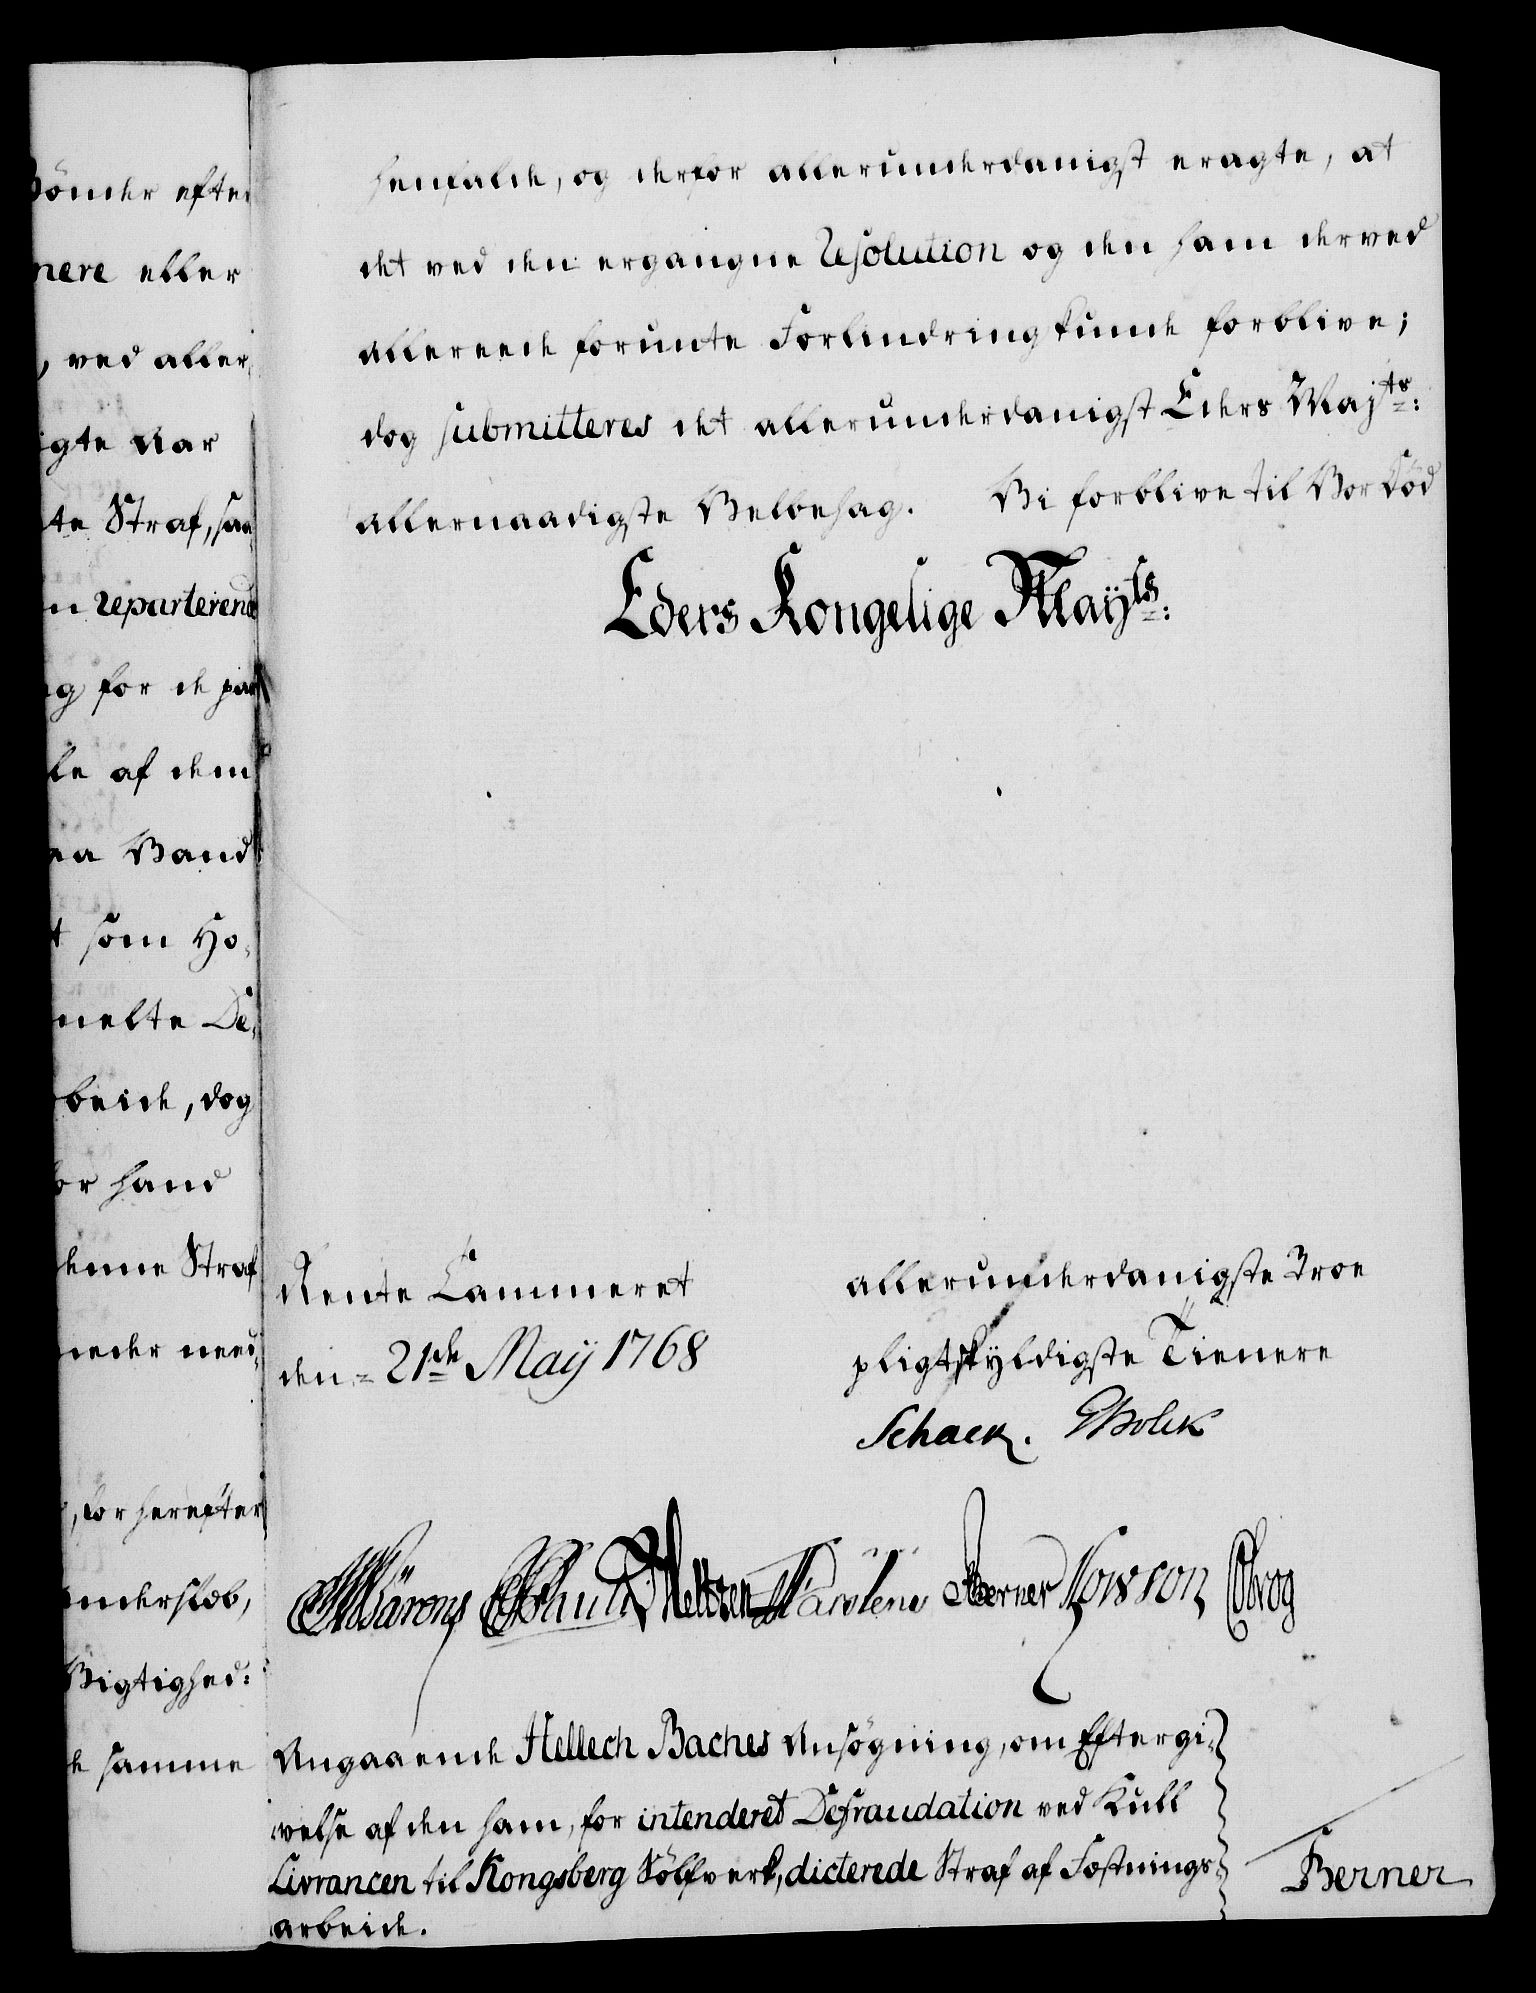 Bönder efter
nere eller
, ved aller
igte Aar
te Straf, saa
n reparterende
og for de paa
le af dem
aa Vand
t som Ho-
melte De-
beide, dog
for hand
denne Straf
neder need-
, for herefter
enderslæb,
Vigtighed:
de samme
henfalde, og derfor allerunderdanigst eragte, at
det ved den ergangne Resolution og den ham derved
allereede forunte Forlindring kunde forblive;
dog submitteres det allerunderdanigst Eders Majts:
allernaadigste Velbehag. Vi forblive til Vor Död
Eders Kongelige Mayts:
Rente Cammeret
den 21de Maij 1768
allerunderdanigste Troe
pligtskyldigste Tienere
Schack. Holck
Meltzen Berner Kowson Obrog
Angaaende Hellech Baches Ansögning, om Eftergi-
velse af den ham, for intenderet Defraudation ved Kull
Livrancen til Kongsberg Sölfverk, dicterede Straf af Fæstnings-
arbeide.
Berner